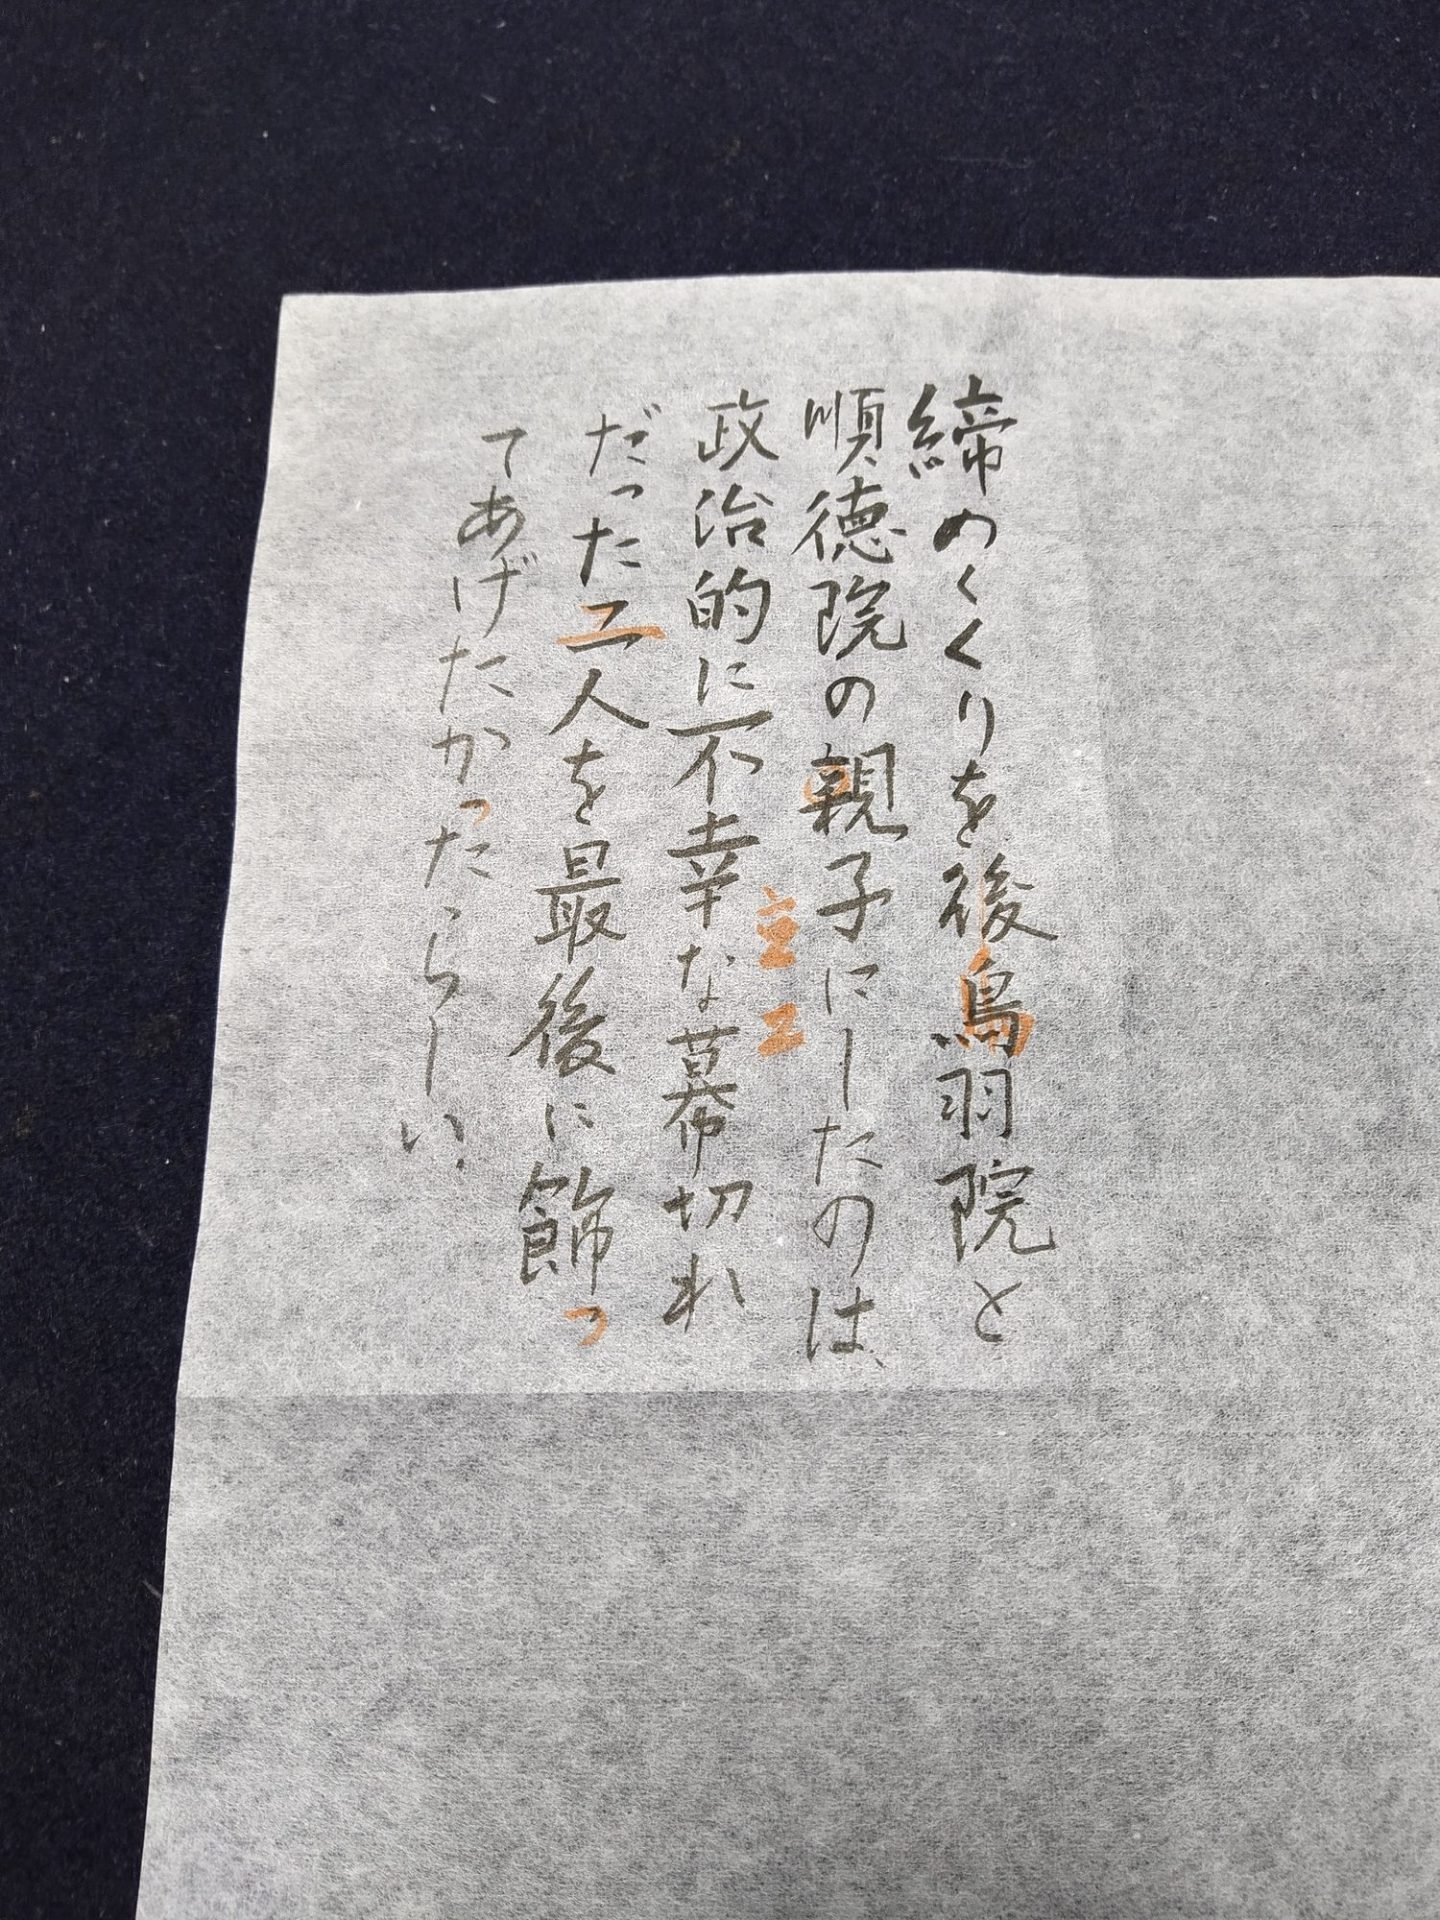 締めくくりを後鳥羽院と
順徳院の親子にしたのは、
政治的に不幸な幕切れ
だった二人を最後に飾っ
てあげたかったらしい。